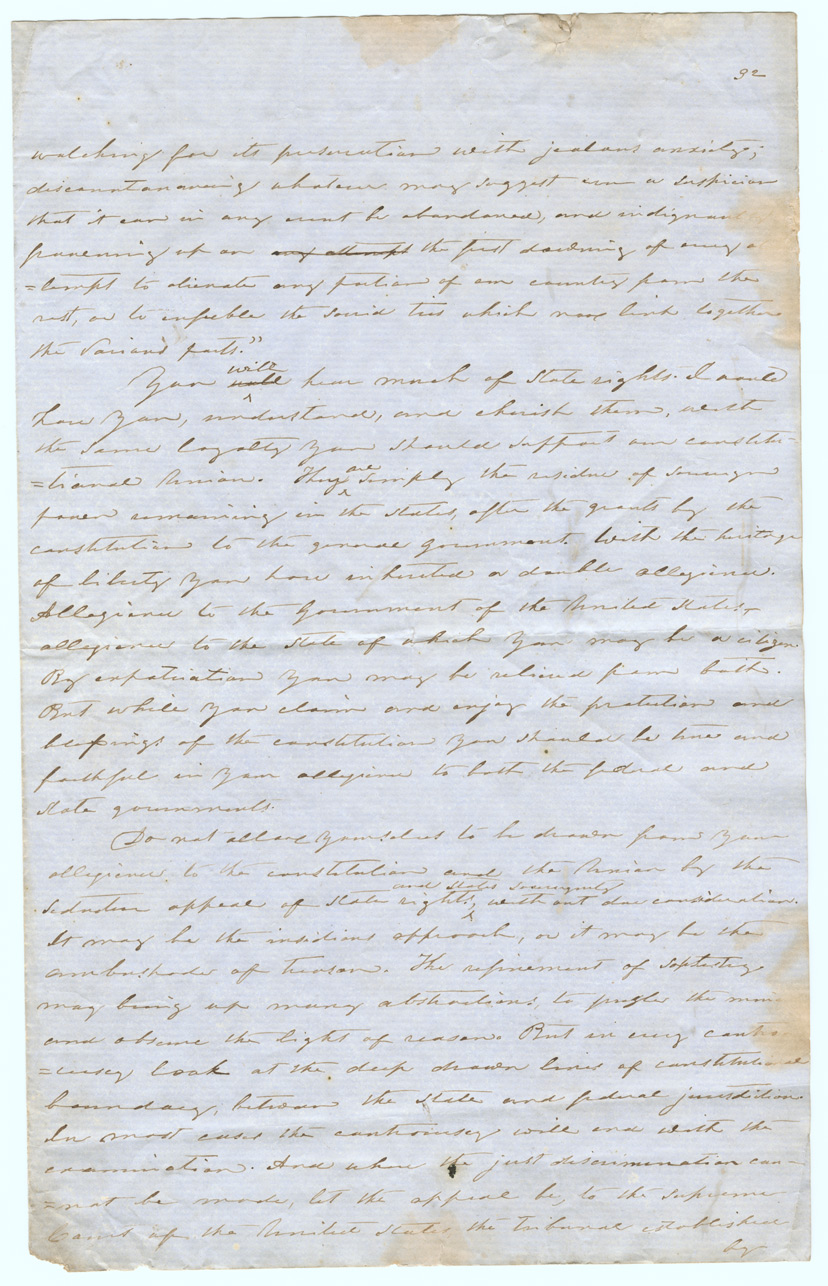 32
watching for its preservation with jealous anxiety;
discountenancing whatever may suggest even a suspicion
that it can in any event be abandoned, and indignant
frowning upon any attempt the first dawning of every a
=tempt to alienate any portion of our country from the
rest, or to enfeeble the sacred ties which now link together
the various parts."
will
You hear much of State rights. I would
have you, understand, and cherish them, with
the same loyalty you should support our constitu-
are
=tional Union. They simply the residue of sovereign
power remaining in the States, after the grants by the
constitution to the general government. With the heritage
of liberty you have inherited a double allegiance.
Allegiance to the Government of the United States,
allegiance to the State of which you may be a citizen.
By expatriation you may be relieved from both.
But while you claim and enjoy the protection and
blessings of the constitution you should be true and
faithful in your allegiance to both the federal and
state governments.
Do not allow yourselves to be drawn from your
allegiance to the constitution and the Union by the
and States Sovereignty
seductive appeal of State rights, without due consideration.
It may be the insidious approach, or it may be the
ambuscade of treason. The refinement of sophistry
may bring up many abstractions, to puzzle the min
and obscure the light of reason. But in every contro
=versy look at the deep drawn lines of constitutional
boundary, between the State and federal jurisdiction.
In most cases the controversy will end with the
examination. And where the just discrimination can-
=not be made, let the appeal be, to the Supreme
Court of the United States the tribunal established
by